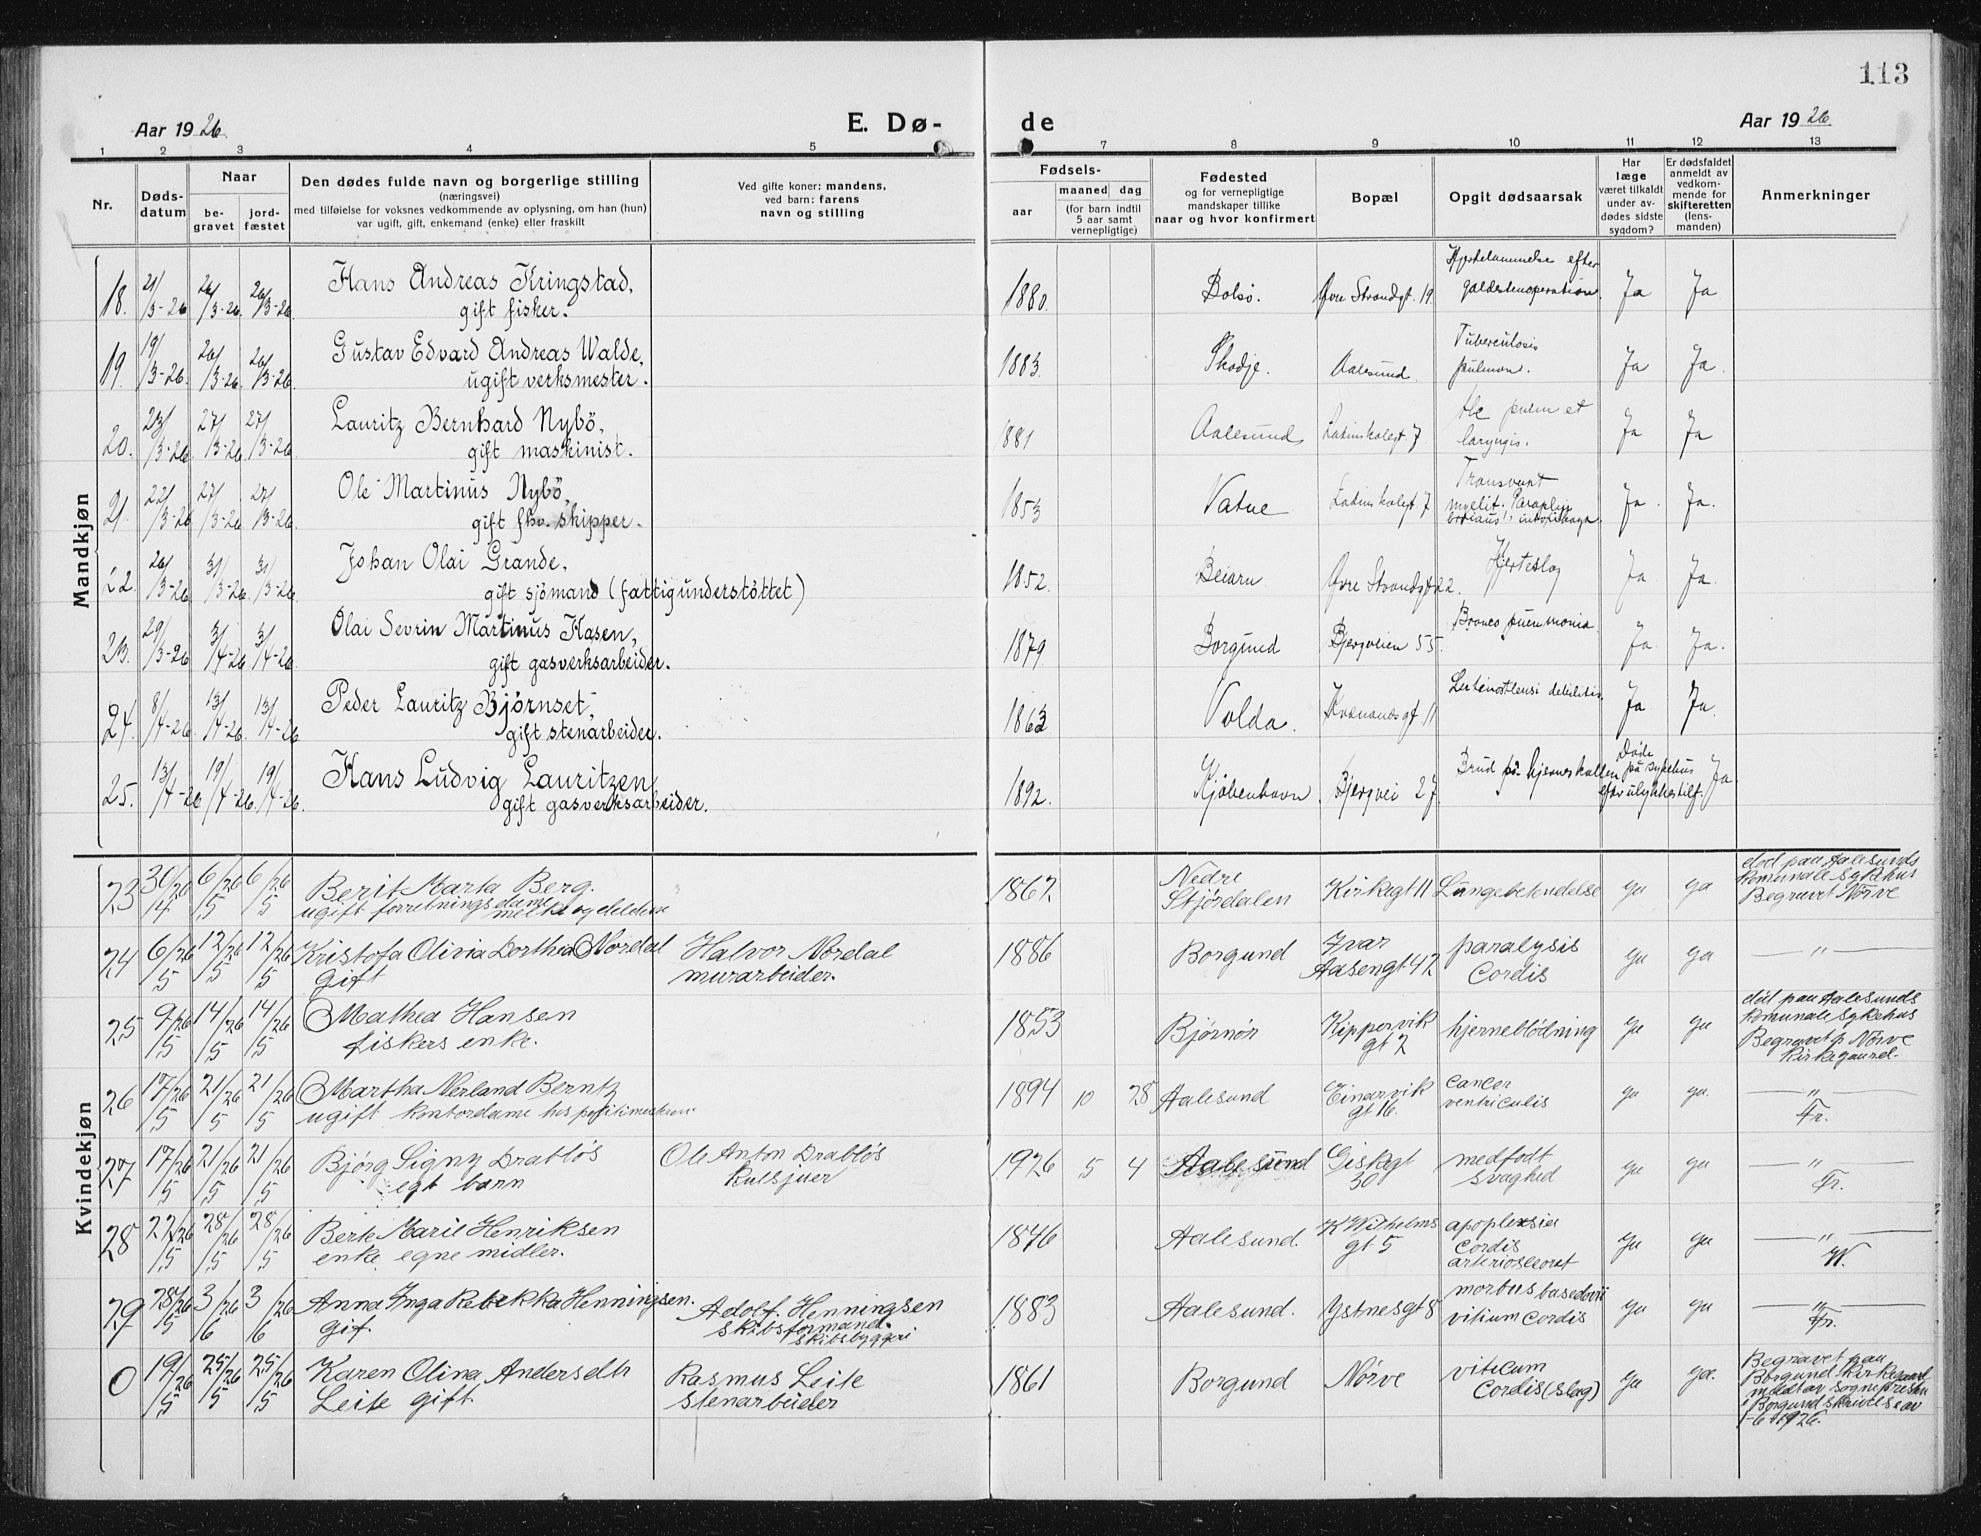 113
Aar 1926. E. Dø- de Aar 1926
1 2 3 4 5 7 8 9 10 11 12 13
Nr.
Døds-
datum
Naar
be-
gravet
jord-
fæstet
Den dødes fulde navn og borgerlige stilling
(næringsvei)
med tilføielse for voksnes vedkommende av oplysning, om han (hun)
var ugift, gift, enkemand (enke) eller fraskilt
Ved gifte koner: mandens,
ved barn: farens
navn og stilling
Fødsels-
aar
maaned dag
(for barn indtil
5 aar samt
vernepligtige)
Fødested
og for vernepligtige
mandskaper tillike
naar og hvor konfirmert
Bopæl
Opgit dødsaarsak
Har
læge
været tilkaldt
under av-
dødes sidste
sygdom?
Er dødsfaldet
anmeldt av
vedkom-
mende for
skifteretten
(lens-
manden)
Anmerkninger
Mandkjøn
18. 21/3-26 26/3-26. 26/3-26. Hans Andreas Kringstad, 1880. Bolsø. Øvre Strandgt. 19. Hjertelammelse efter Ja Ja
gift fisker. galdestenoperation.
19. 19/3-26. 26/3-26. 26/3-26. Gustav Edvard Andreas Walde, 1883. Skodje. Aalesund. Tuberculosis Ja Ja.
ugift verksmester. pulmon.
20. 23/3-26. 27/3-26. 27/3-26. Lauritz Bernhard Nybö, 1881 Aalesund Latinskolegt 7 Tbc pulm et Ja Ja
gift maskinist. laryngis.
21. 22/3-26 27/3-26 27/3-26. Ole Martinus Nybö, 1853 Vatne Latinskolegt 7 Ja. Ja.
gift fhv. skipper. myelit.
22. 26/3-26 31/3-26. 31/3-26. Johan Olai Grande, 1852. Beiarn Øvre Strandgt 22. Hjerteslag Ja Ja.
gift sjömand (fattigunderstöttet)
23. 29/3-26 3/4-26 3/4-26. Olai Sevrin Martinus Hasen, 1879. Borgund Bjergveien 55. Ja. Ja.
gift gasverksarbeider.
24. 8/4-26. 13/4-26. 13/4-26. Peder Lauritz Bjørnset, 1863 Volda. 11 Ja Ja.
gift stenarbeider.
25. 13/4-26 19/4-26 19/4-26. Hans Ludvig Lauritzen, 1892. Kjøbenhavn. Bjergvei 27. Brud på hjerneskallen Døde på sykehus Ja.
gift gasverksarbeider. efter ulykkestilf.
Kvindekjøn
23 30/26 4 6/26 5 6/26 5 Berit Marta Berg. 1867. Nedre Stjördalen Kirkegt 11 Lungebetendelse ja ja död paa Aalesunds
ugift forretningsdame komunale Sykehus
Begravet Nörve
24 6/26 5 12/26 5 12/26 5 Kristofa Olivia Dorthea Nordal Halvor Nordal 1886 Borgund Ivar Aasengt 47 paralysis ja ja — " —
gift murarbeider. Cordis
25 9/26 5 14/26 5 14/26 5 Mathea Hansen 1853 Bjørnør Kippervik gt 2 hjerneblödning ja ja död paa Aalesunds
fiskers enke. komunale Sykehus
Begravet p. Nörve
kirkegaard.
26 17/26 5 21/26 5 21/26 5 Martha Nerland Berntz 1894 10 28 Aalesund Einarvik gt 16. cancer ja ja. — " —
ugift kontordame hos ventriculis Fr.
27 17/26 5 21/26 5 21/26 5 Bjørg Signy Drabløs Ole Anton Drabløs 1926 5 4 Aalesund Giskegt 50 medfødt ja ja — " —
egt barn Kulsjuer svaghed Fr.
28 22/26 5 28/26 5 28/26 5 Berte Marie Henriksen 1846 Aalesund. K Wilhelms gt 5 apoplexsia ja ja — " —
enke egne midler. Cordis W.
29 28/26 5 3/26 6 3/26 6 Anna Inga Rebekka Henningsen. Adolf. Henningsen 1883 Aalesund. Ystnesgt 8 morbus basedovii ja ja — " —
gif. skibsformand. vitium cordis Fr.
skibsbyggeri
0 19/26 5 25/26 5 25/26 5 Karen Olina Andersdtr Rasmus Leite 1861 Borgund Nörve viticum ja ja. Begravet paa
Leite gift. stenarbeider Cordis (slag) Borgund Kirkegaard
medt av sognepresten
i Borgund skrivelse av
1-6 1926.